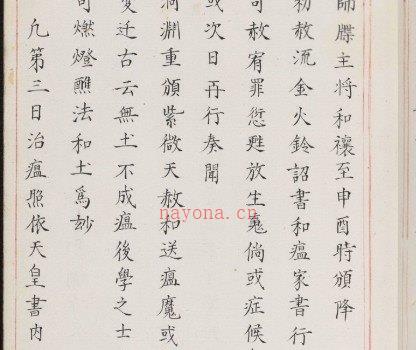 師牒主將和禳至申酉時頒降
初赦流金火鈴詔書和瘟家書行
可赦宥罪愆甦放生䰟倘或症候
或次日再行奏聞
洞淵重頒紫微天赦和送瘟魔或
變迁古云無土不成瘟後學之士
可燃燈醮法和土爲妙
凢第三日治瘟照依天皇書內
nayona.cn